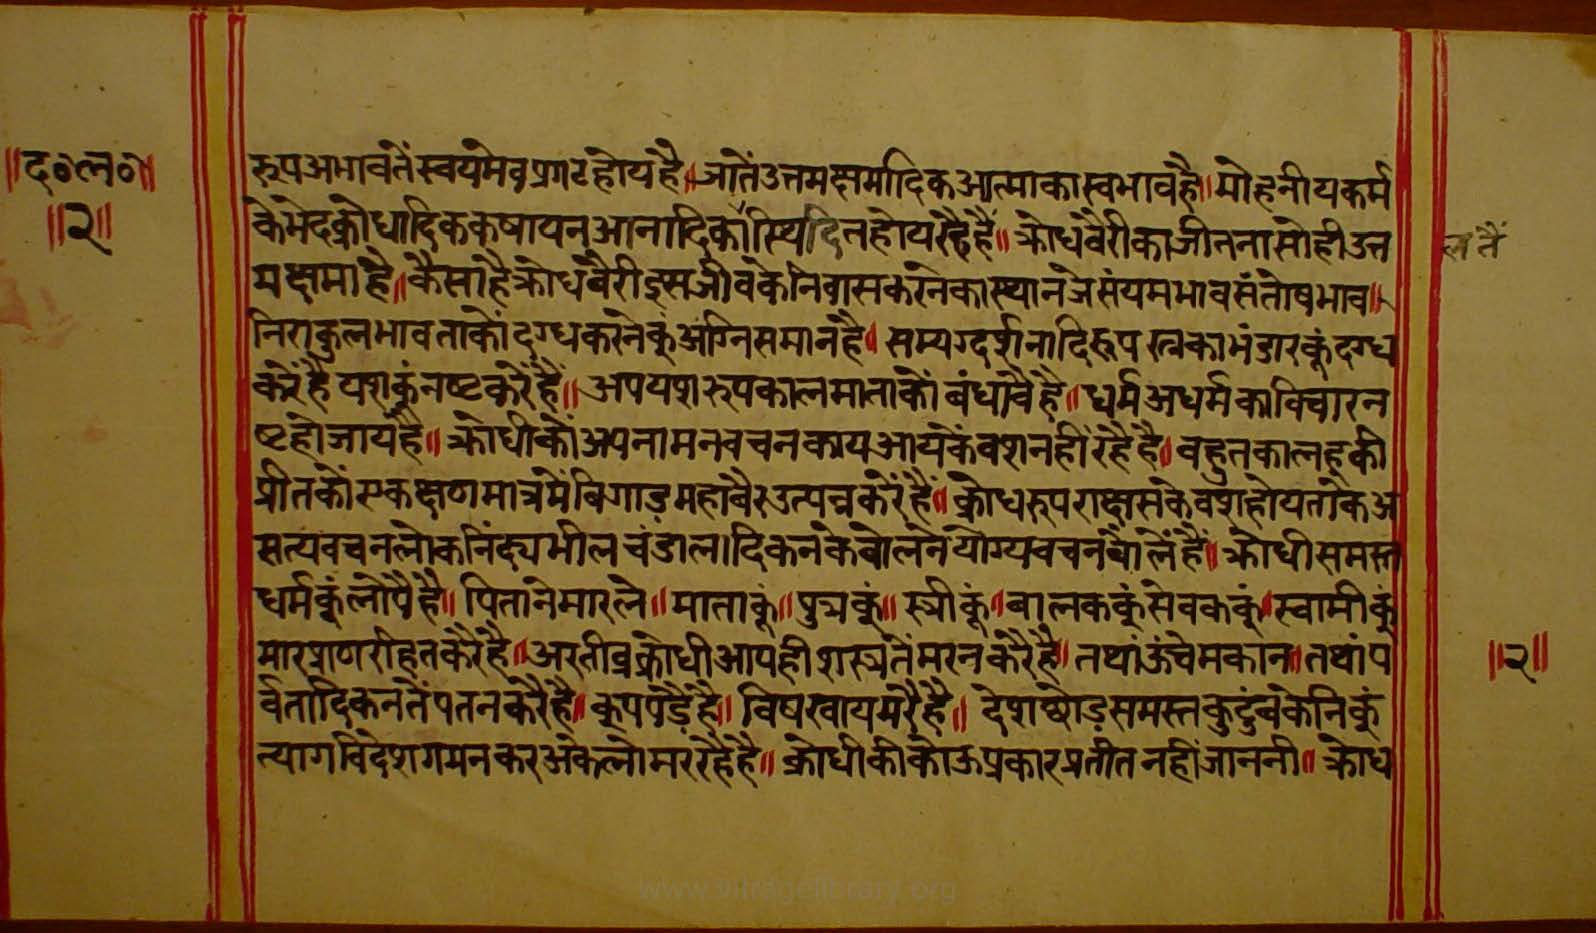 ॥द०ल०॥
॥२॥
रुपअभावतेंस्वयमेवप्रगटहोयहै॥जातेंउत्तमक्षमादिकआत्माकास्वभावहै॥मोहनीयकर्म
केभेदक्रोधादिककषायन
होयरहैहैं॥क्रोधवैरीकाजीतनासोहीउत्त
लतैं
मक्षमाहै॥कैसाहैक्रोधबैरीइसजीवकेनिवासकरनेकास्थानजेसंयमभावसंतोषभाव॥
निराकुलभावताकोंदग्धकरनेकुंअग्निसमानहै॥सम्यग्दर्शनादिरूपरत्नकाभंडारकूंदग्ध
करेंहैयशकुंनष्टकरेंहैं॥अपयशरुपकालमाताकोंबंधावैहै॥धर्मअधर्मकाविचारन
ष्टहोजायहै॥क्रोधीकोंअपनामनवचनकायआपकेंवशनहींरहैहै॥बहुतकालहूकी
प्रीतकोंएकक्षणमात्रमेंबिगाड़महाबैरउत्पन्नकरेंहैं॥क्रोधरुपराक्षसकेवशहोयतोकेअ
सत्यवचनलोकनिंद्यभीलचंडालादिकनकेबोलनेयोग्यवचनबोलेंहैं॥क्रोधीसमस्त
धर्मकूंलोपैहै॥पितानेमारले॥माताकूं॥पुत्रकूं॥स्त्रीकूं॥बालककूंसेवककूं॥स्वामीकूं
मारप्राणरहितकरैहै॥अरतीव्रक्रोधीआपहीशस्त्रतेंमरनकरैहै॥तथांऊंचेमकान॥तथांप
॥२॥
र्वतादिकनतेंपतनकरैहै॥कूपपड़ैहै॥विषखायमरैहै॥देशछोड़समस्तकुटुंबकेनिकुं
त्यागविदेशगमनकरअकेलोमररहैहै॥क्रोधीकीकोऊप्रकारप्रतीतनहींजाननी॥क्रोध
www.vitragelibrary.org